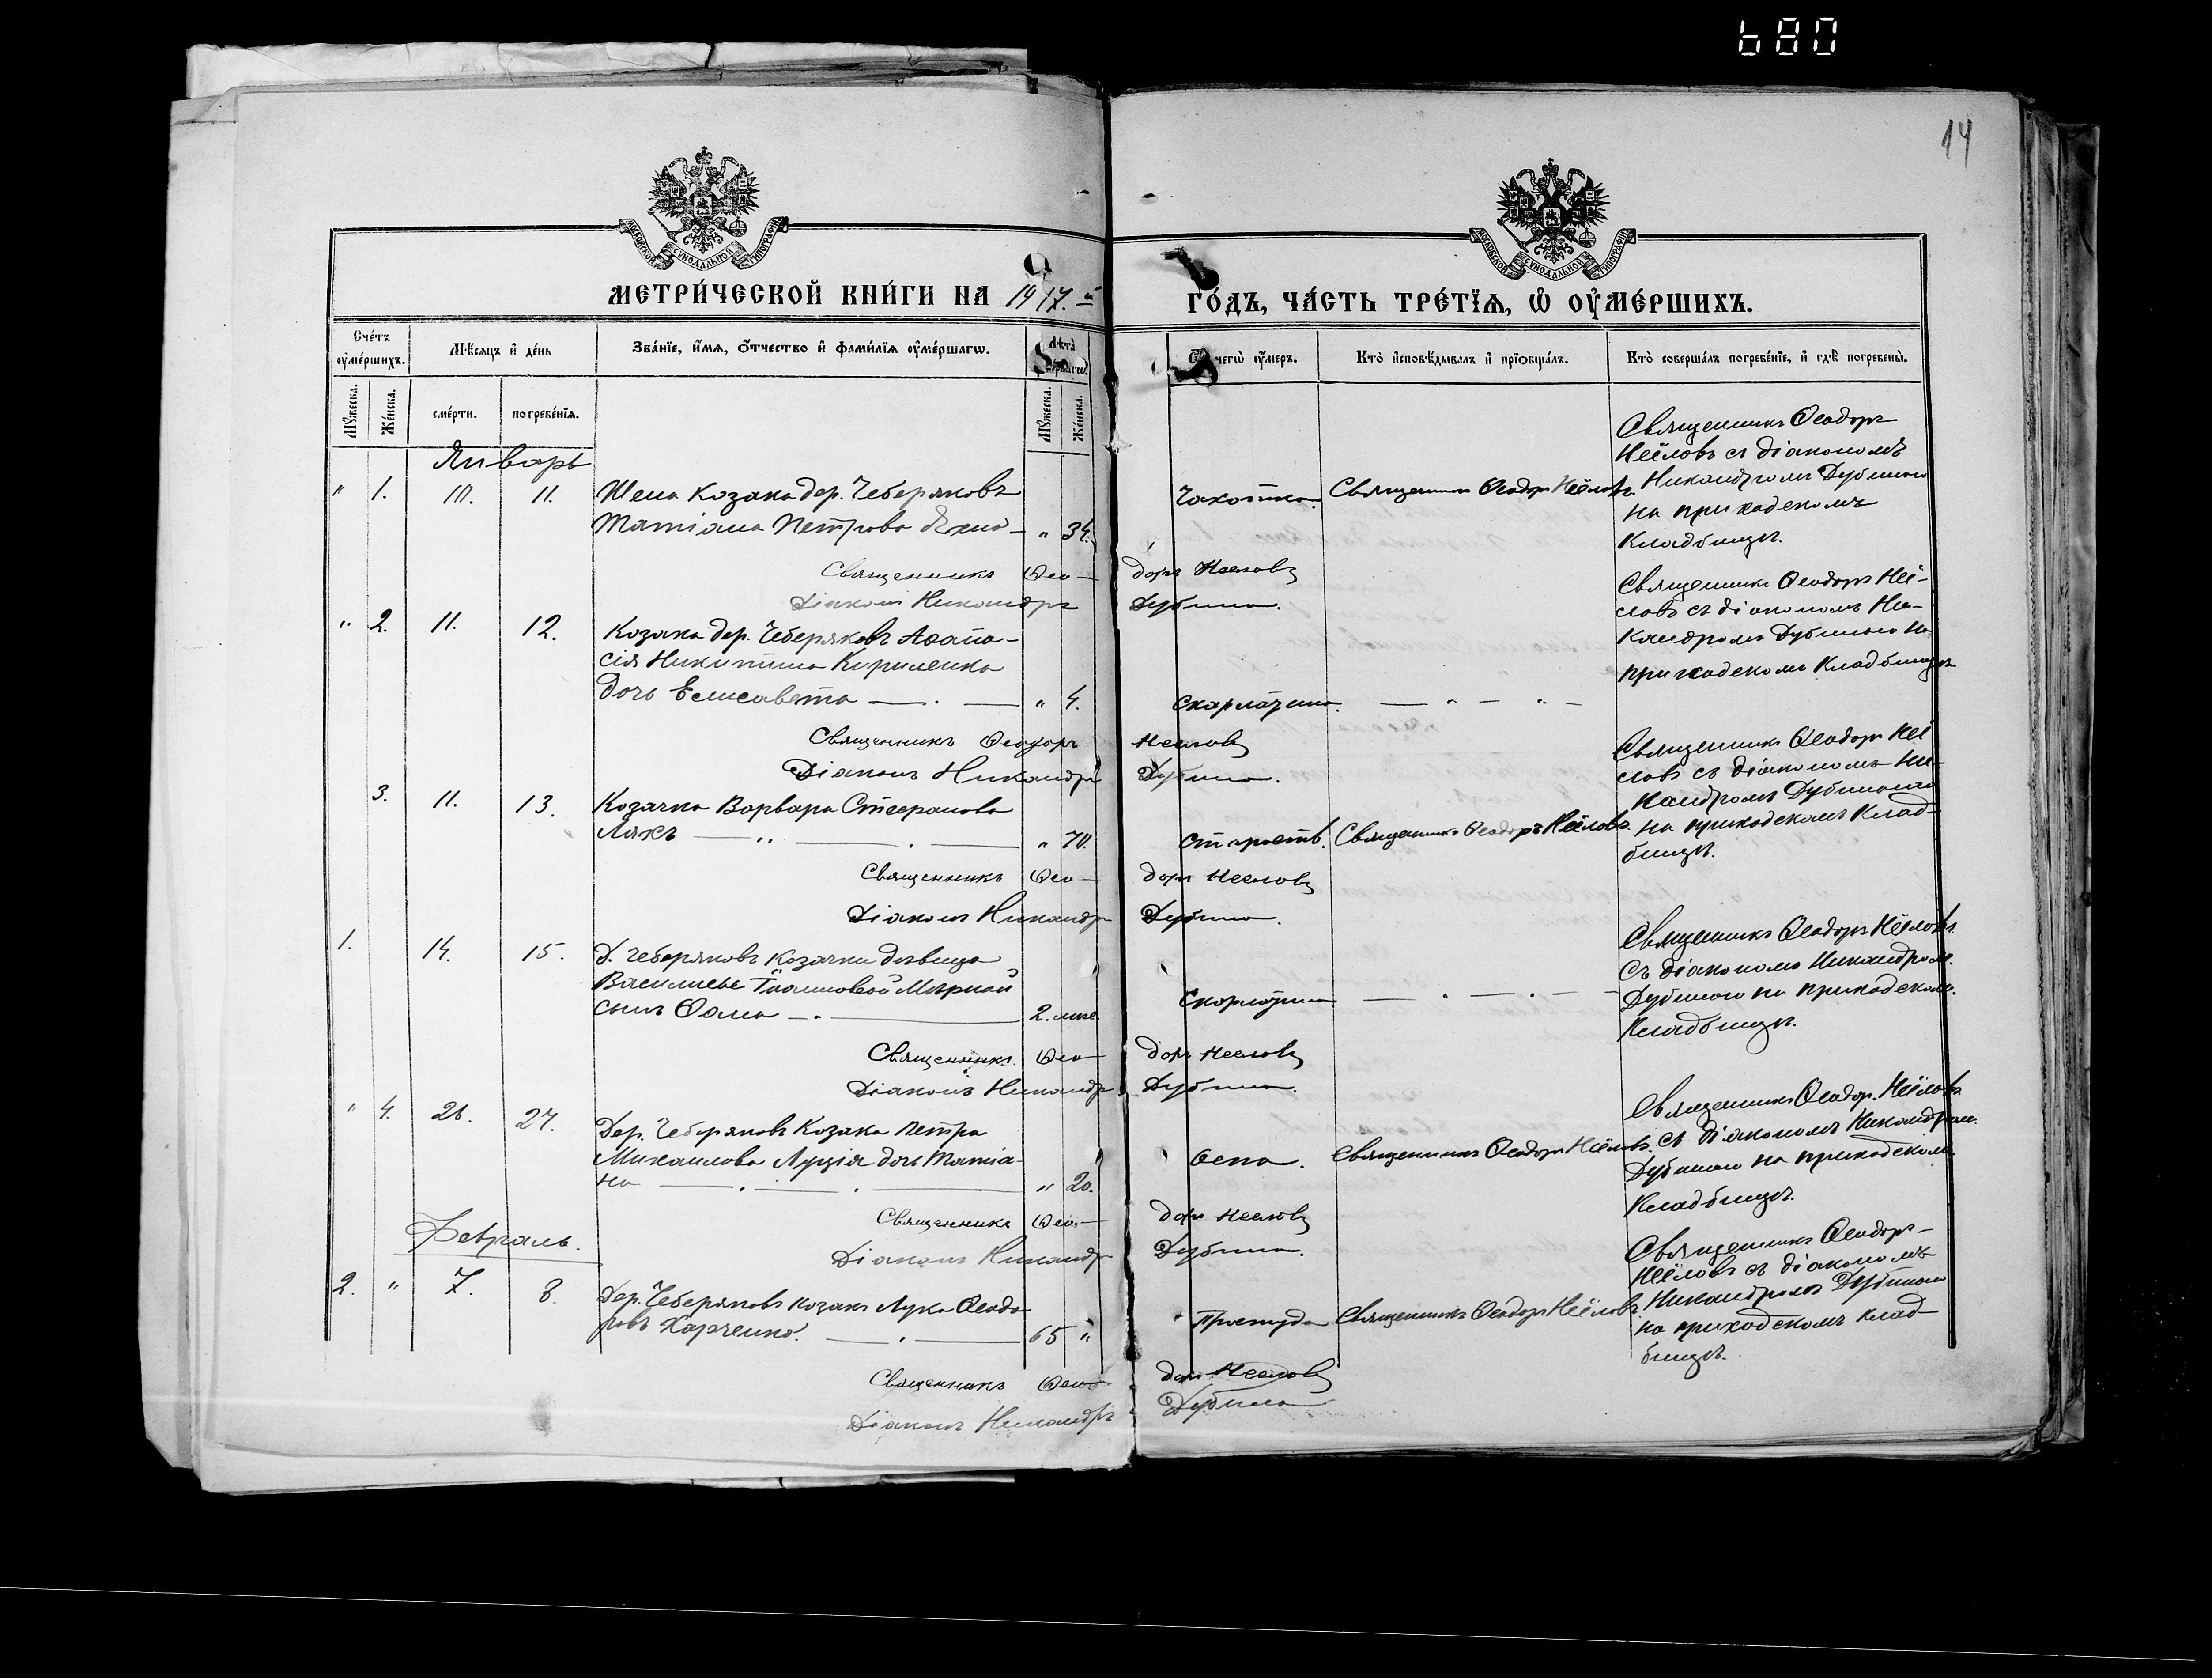 680
14
МОСКОВСКОЙ СУНОДАЛЬНОЙ ТИПОГРАФІИ
МОСКОВСКОЙ СУНОДАЛЬНОЙ ТИПОГРАФІИ
МЕТРИ́ЧЕСКОЙ КНИ́ГИ НА 1917.й ГО́ДЪ, ЧА́СТЬ ТРЕ́ТІѦ, Ѡ҆ ОУ҆МЕ́РШИХЪ.
Сче́тъ оу҆ме́ршихъ.
Мѣ́сяцъ и҆ де́нь
Зва́ніе, и҆́мѧ, ѻ҆́тчество и҆ фами́лїѧ оу҆ме́ршагѡ.
Лѣта̀
чегѡ̀ оу҆́меръ.
Кто̀ и҆сповѣ́дывалъ и҆ прїѡбща́лъ.
Кто̀ соверша́лъ погребе́нїе, и҆ гдѣ̀ погребены̀.
Мꙋ́жеска.
Же́нска.
сме́рти.
погребе́нїѧ.
Мꙋ́жеска.
Же́нска.
Январь
" 1. 10. 11. Жена козака дер. Чеберяковъ
Татіана Петрова " 34.
Чахотка. Священникъ Ѳеодоръ Неёловъ.
Священникъ Ѳеодоръ
Неёловъ съ діакономъ
Никандромъ Дубиною
на приходскомъ
кладбищѣ.
Священникъ Ѳео- доръ Нееловъ
Діаконъ Никандръ Дубина.
" 2. 11. 12. Козака дер. Чеберяковъ Аѳана-
сія Никитина Кириленка
дочь Елисавета " 4.
Скарлатина. — " — " —
Священникъ Ѳеодоръ Неё-
ловъ съ діакономъ Ни-
кандромъ Дубиною на
приходскомъ кладбищѣ
Священникъ Ѳеодоръ Нееловъ
Діаконъ Никандръ Дубина.
3. 11. 13. Козачка Варвара Стефанова
Ляхъ " 70.
Отъ старости. Священникъ Ѳеодоръ Неёловъ.
Священникъ Ѳеодоръ Неё
ловъ съ діакономъ Ни-
кандромъ Дубиною
на приходскомъ клад-
бищѣ.
Священникъ Ѳео- доръ Нееловъ
Діаконъ Никандръ Дубина.
1. 14. 15. Д. Чеберяковъ козачки дѣвицы
Василисы
сынъ Ѳома 2. мѣс.
Скарлатина — . — . —
Священникъ Ѳеодоръ Неёловъ.
съ діакономъ Никандромъ
Дубиною на приходском.
кладбищѣ.
Священникъ Ѳео- доръ Нееловъ
Діаконъ Никандръ Дубина.
" 4. 26. 27. Дер. Чеберяковъ козака Петра
Михаилова дочь Татіа-
на " 20.
Оспа. Священникъ Ѳеодоръ Неёловъ.
Священникъ Ѳеодоръ Неёловъ
съ діакономъ Никандром.
Дубиною на приходском.
кладбищѣ.
Священникъ Ѳео- доръ Нееловъ
Діаконъ Никандръ Дубина.
Февраль.
2. " 7. 8. Дер. Чеберяковъ козакъ Лука Ѳеодо-
ровъ Харченко. 65 "
Простуда Священникъ Ѳеодоръ Неёловъ
Священникъ Ѳеодоръ
Неёловъ съ діакономъ
Никандромъ Дубиною
на приходскомъ клад-
бищѣ.
Священникъ Ѳео- доръ Нееловъ
Діаконъ Никандръ Дубина